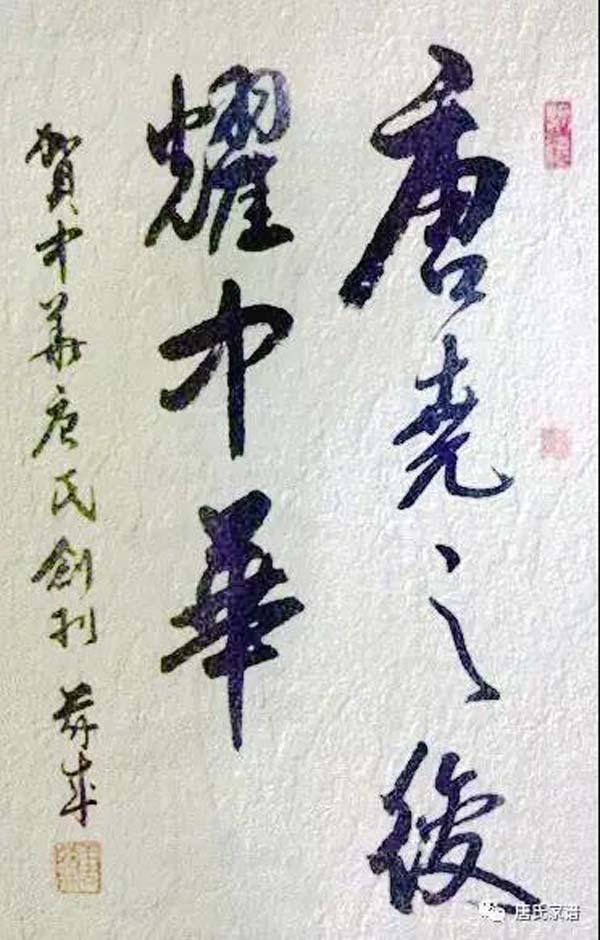 唐堯之後
耀中華
賀中華唐氏創刊
唐氏家谱